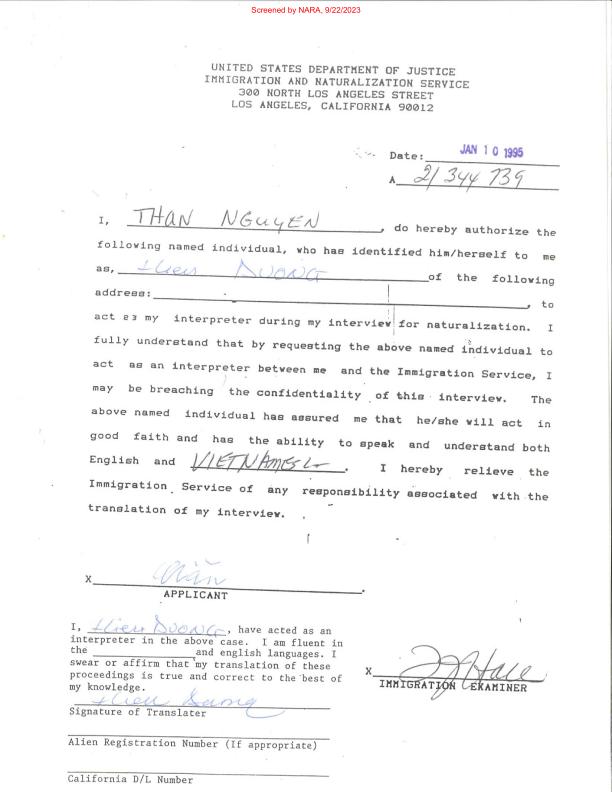 Screened by NARA, 9/22/2023
UNITED STATES DEPARTMENT OF JUSTICE
IMMIGRATION AND NATURALIZATION SERVICE
300 NORTH LOS ANGELES STREET
LOS ANGELES, CALIFORNIA 90012
Date: JAN 10 1995
A 21 344 739
I, THAN NGUYEN, do hereby authorize the
following named individual, who has identified him/herself to me
as, Hien DUONG of the following
address: , to
act as my interpreter during my interview for naturalization. I
fully understand that by requesting the above named individual to
act as an interpreter between me and the Immigration Service, I
may be breaching the confidentiality of this interview. The
above named individual has assured me that he/she will act in
good faith and has the ability to speak and understand both
English and VIETNAMESE. I hereby relieve the
Immigration Service of any responsibility associated with the
translation of my interview.
X
APPLICANT
I, Hien DUONG, have acted as an
interpreter in the above case. I am fluent in
the and english languages. I
swear or affirm that my translation of these
proceedings is true and correct to the best of
my knowledge.
Hien Duong
Signature of Translater
X
IMMIGRATION EXAMINER
Alien Registration Number (If appropriate)
California D/L Number